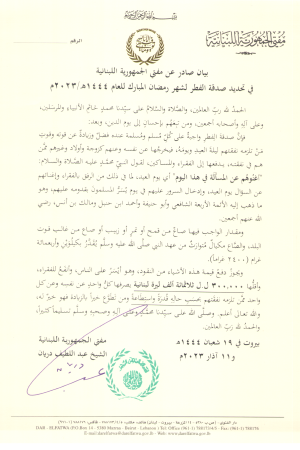 مفتي الجمهورية اللبنانية
الرقم
بيان صادر عن مفتي الجمهورية اللبنانية
في تحديد صدقة الفطر لشهر رمضان المبارك للعام ١٤٤٤هـ/٢٠٢٣م
الحمدُ لله ربِّ العالمين، والصَّلاةُ والسَّلامُ على سيِّدنا محمدٍ خاتمِ الأنبياءِ والمرسَلين،
وعلى آلهِ وأصحابِه أجمعين، ومن تبعَهُم بإحسانٍ إلى يومِ الدين، وبعد:
فإنَّ صدقةَ الفِطرِ واجبةٌ على كُلِّ مُسلمٍ ومُسلمةٍ عندَه فضلٌ وزيادةٌ عن قوتِه وقوتِ
مَنْ تلزمه نفقتهم ليلة العيد ويومه، فيخرجُها عن نفسه وعنهم كزوجة وأولاد وغيرهم ممن
هم في نفقته، يدفعها إلى الفقراء والمساكين، لقول النبيِّ محمَّدٍ عليه الصلاة والسلام:
"اغنوهم عن المسألة في هذا اليوم" أي يوم العيد، لما في ذلك من الرفق بالفقراء وإغنائهم
عن السؤال يوم العيد، وإدخال السرور عليهم في يوم يُسَرُّ المسلمون بقدومه عليهم، وهو
ما ذهب إليه الأئمة الأربعة الشافعي وأبو حنيفة وأحمد ابن حنبل ومالك بن أنس، رضي
الله عنهم أجمعين.
ومقدار الواجب فيها صاعٌ من قمحٍ أو تمرٍ أو زبيبٍ أو صاع من غالب قوت
البلد، والصَّاع مكيالٌ متوارَثٌ من عهد النبي صلَّى الله عليه وسلَّم يُقدَّرُ بكيلُوَيْنِ وأربعمائة
غرام (٢٤٠٠ غراماً)
ويجوزُ دفعُ قيمةِ هذه الأشياءِ من النقود، وهو أيسرُ على الناس، وأنفعُ للفقراء،
وأقلُّها ٣٠٠,٠٠٠ ل.ل ثلاثمائة ألف ليرة لبنانية يصرفها كلُّ واحدٍ عن نفسه وعن كل
واحدٍ ممَّن تلزمه نفقتهم بحسب حاله قدرةً واستطاعةً ومن تطوَّع خيراً بالزيادة فهو خيرٌ له،
والله تعالى أعلم. وصلَّى الله على سيِّدنا محمَّدٍ وعلى آله وصحبه وسلَّم تسليماً كثيراً،
والحمدُ لله ربِّ العالمين.
بيروت في ١٩ شعبان ١٤٤٤هـ
و ١١ آذار ٢٠٢٣م
مفتي الجمهورية اللبنانية
الشيخ عبد اللطيف دريان